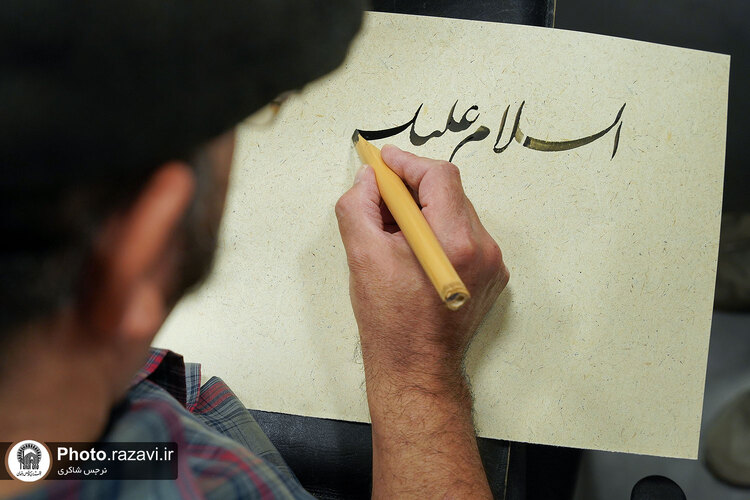 السلام علیک
Photo.razavi.ir
نرجس شاکری